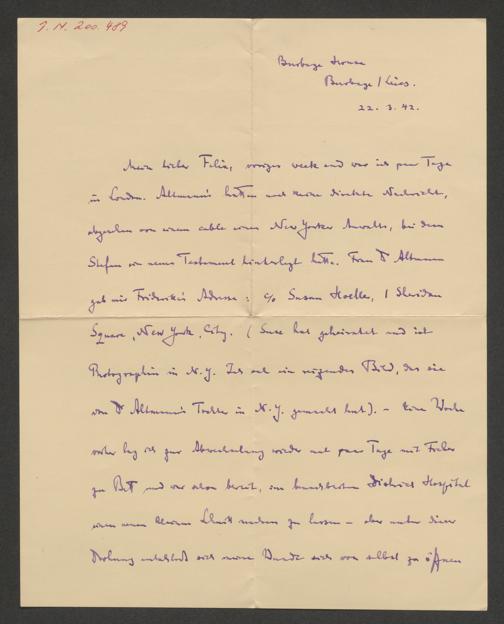 J. N. 200.489
Burbage House
Burbage / Leics.
22. 3. 42.
Mein lieber Felix, voriges week end war ich paar Tage
in London. Altmann's hatten noch keine direkte Nachricht,
abgesehen von einem cable eines New Yorker Anwalts, bei dem
Stefan ein neues Testament hinterlegt hatte. Frau Dr Altmann
gab mir Friderike's Adresse: c/o Susan Hoeller, 1 Sheridan
Square, New York, City. (Suse hat geheiratet und ist
Photographin in N.Y. Ich sah ein reizendes Bild, das sie
von Dr Altmann's Tochter in N.Y. gemacht hat). – Eine Woche
vorher lag ich zur Abwechslung wieder mal paar Tage mit Fieber
zu Bett und war schon bereit, im benachbarten District Hospital
einen neuen kleinen Schnitt machen zu lassen – aber unter dieser
Drohung entschloss sich meine Wunde sich von selbst zu öffnen